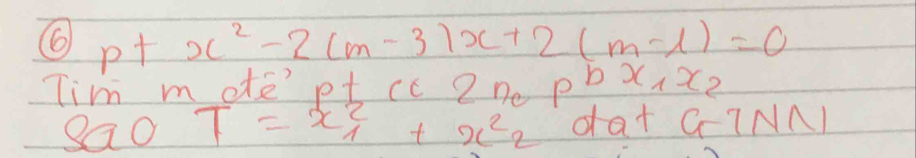 ⑥ pt x² - 2(m-3)x + 2(m-1) = 0
Tìm m để pt có 2 no pb x₁x₂
sao T = x₁² + x₂² đạt GTNN